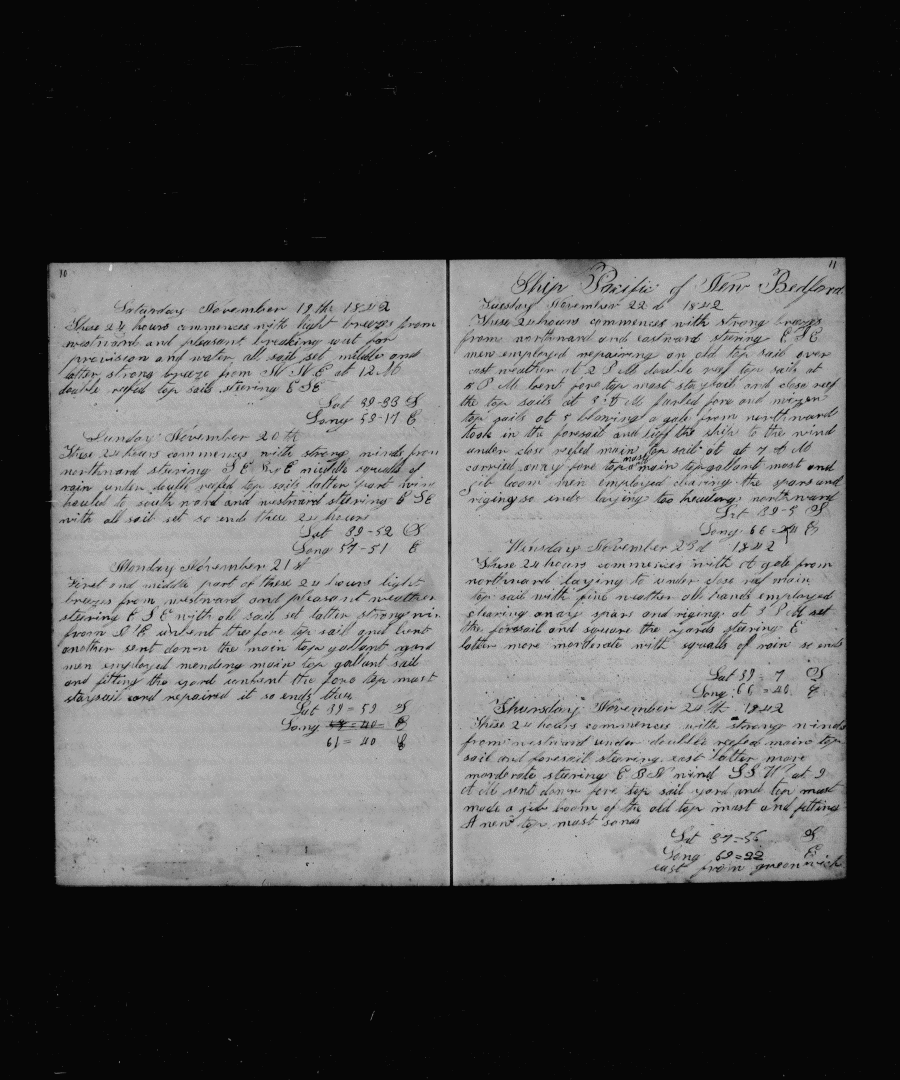 10
Saturday November 19th 1842
These 24 hours commences with light breezes from
westward and pleasant breaking out for
provision and water all sail set middle and
latter strong breeze from N N E at 12 M
double reefed top sails steering E S E
Lat 39-33 S
Long 53-17 E
Sunday November 20th
These 24 hours commences with strong winds from
northward steering S E middle squalls of
rain under double reefed top sails latter part wind
hauled to south and westward steering E S E
with all sail set so ends these 24 hours
Lat 39-52 S
Long 57-51 E
Monday November 21st
First and middle part of these 24 hours light
breezes from westward and pleasant weather
steering E S E with all sail set latter strong win
from unbent the fore top sail and bent
another sent down the main top gallant yard
men employed mending main top gallant sail
and fitting the yard unbent the fore top mast
staysail and repaired it so ends these
Lat 39=59 S
Long E
61=40 E
11
Ship Pacific of New Bedford
Tuesday November 22d 1842
These 24 hours commences with strong breezes
from northward and eastward stering E S E
men employed repairing an old top sail over
cast weather at 2 P M double reef top sails at
5 P M bent fore top mast staysail and close reef
the top sails at 3 A M furled fore and mizen
top sails at 5 blowing a gale from northward
took in the foresail and the ship to the wind
under close refed main top sail at at 7 A M
carried away fore top mast main top gallant mast and
jib boom then employed clearing the spars and
riging so ends laying too heading northward
Lat 39-5 S
Long 66=24 E
Winsday November 23d 1842
These 24 hours commences with A gale from
northward laying to under close ref main
top sail with fine weather all hands employed
clearing away spars and riging at 3 P M set
the foresail and square the yards steering E
latter more morderate with squals of rain so ends
Lat 39=7 S
Long 66=40 E
Thursday November 24th 1842
These 24 hours commences with strong winds
from westward under double reefed main top
sail and foresail steering east latter more
morderate steering E B N wind S S W at 9
A M sent down fore top sail yard and top mast
made a jib boom of the old top mast and fitting
A new top mast so nds
Lat 37=56 S
Long 69=22 E
east from greenwich